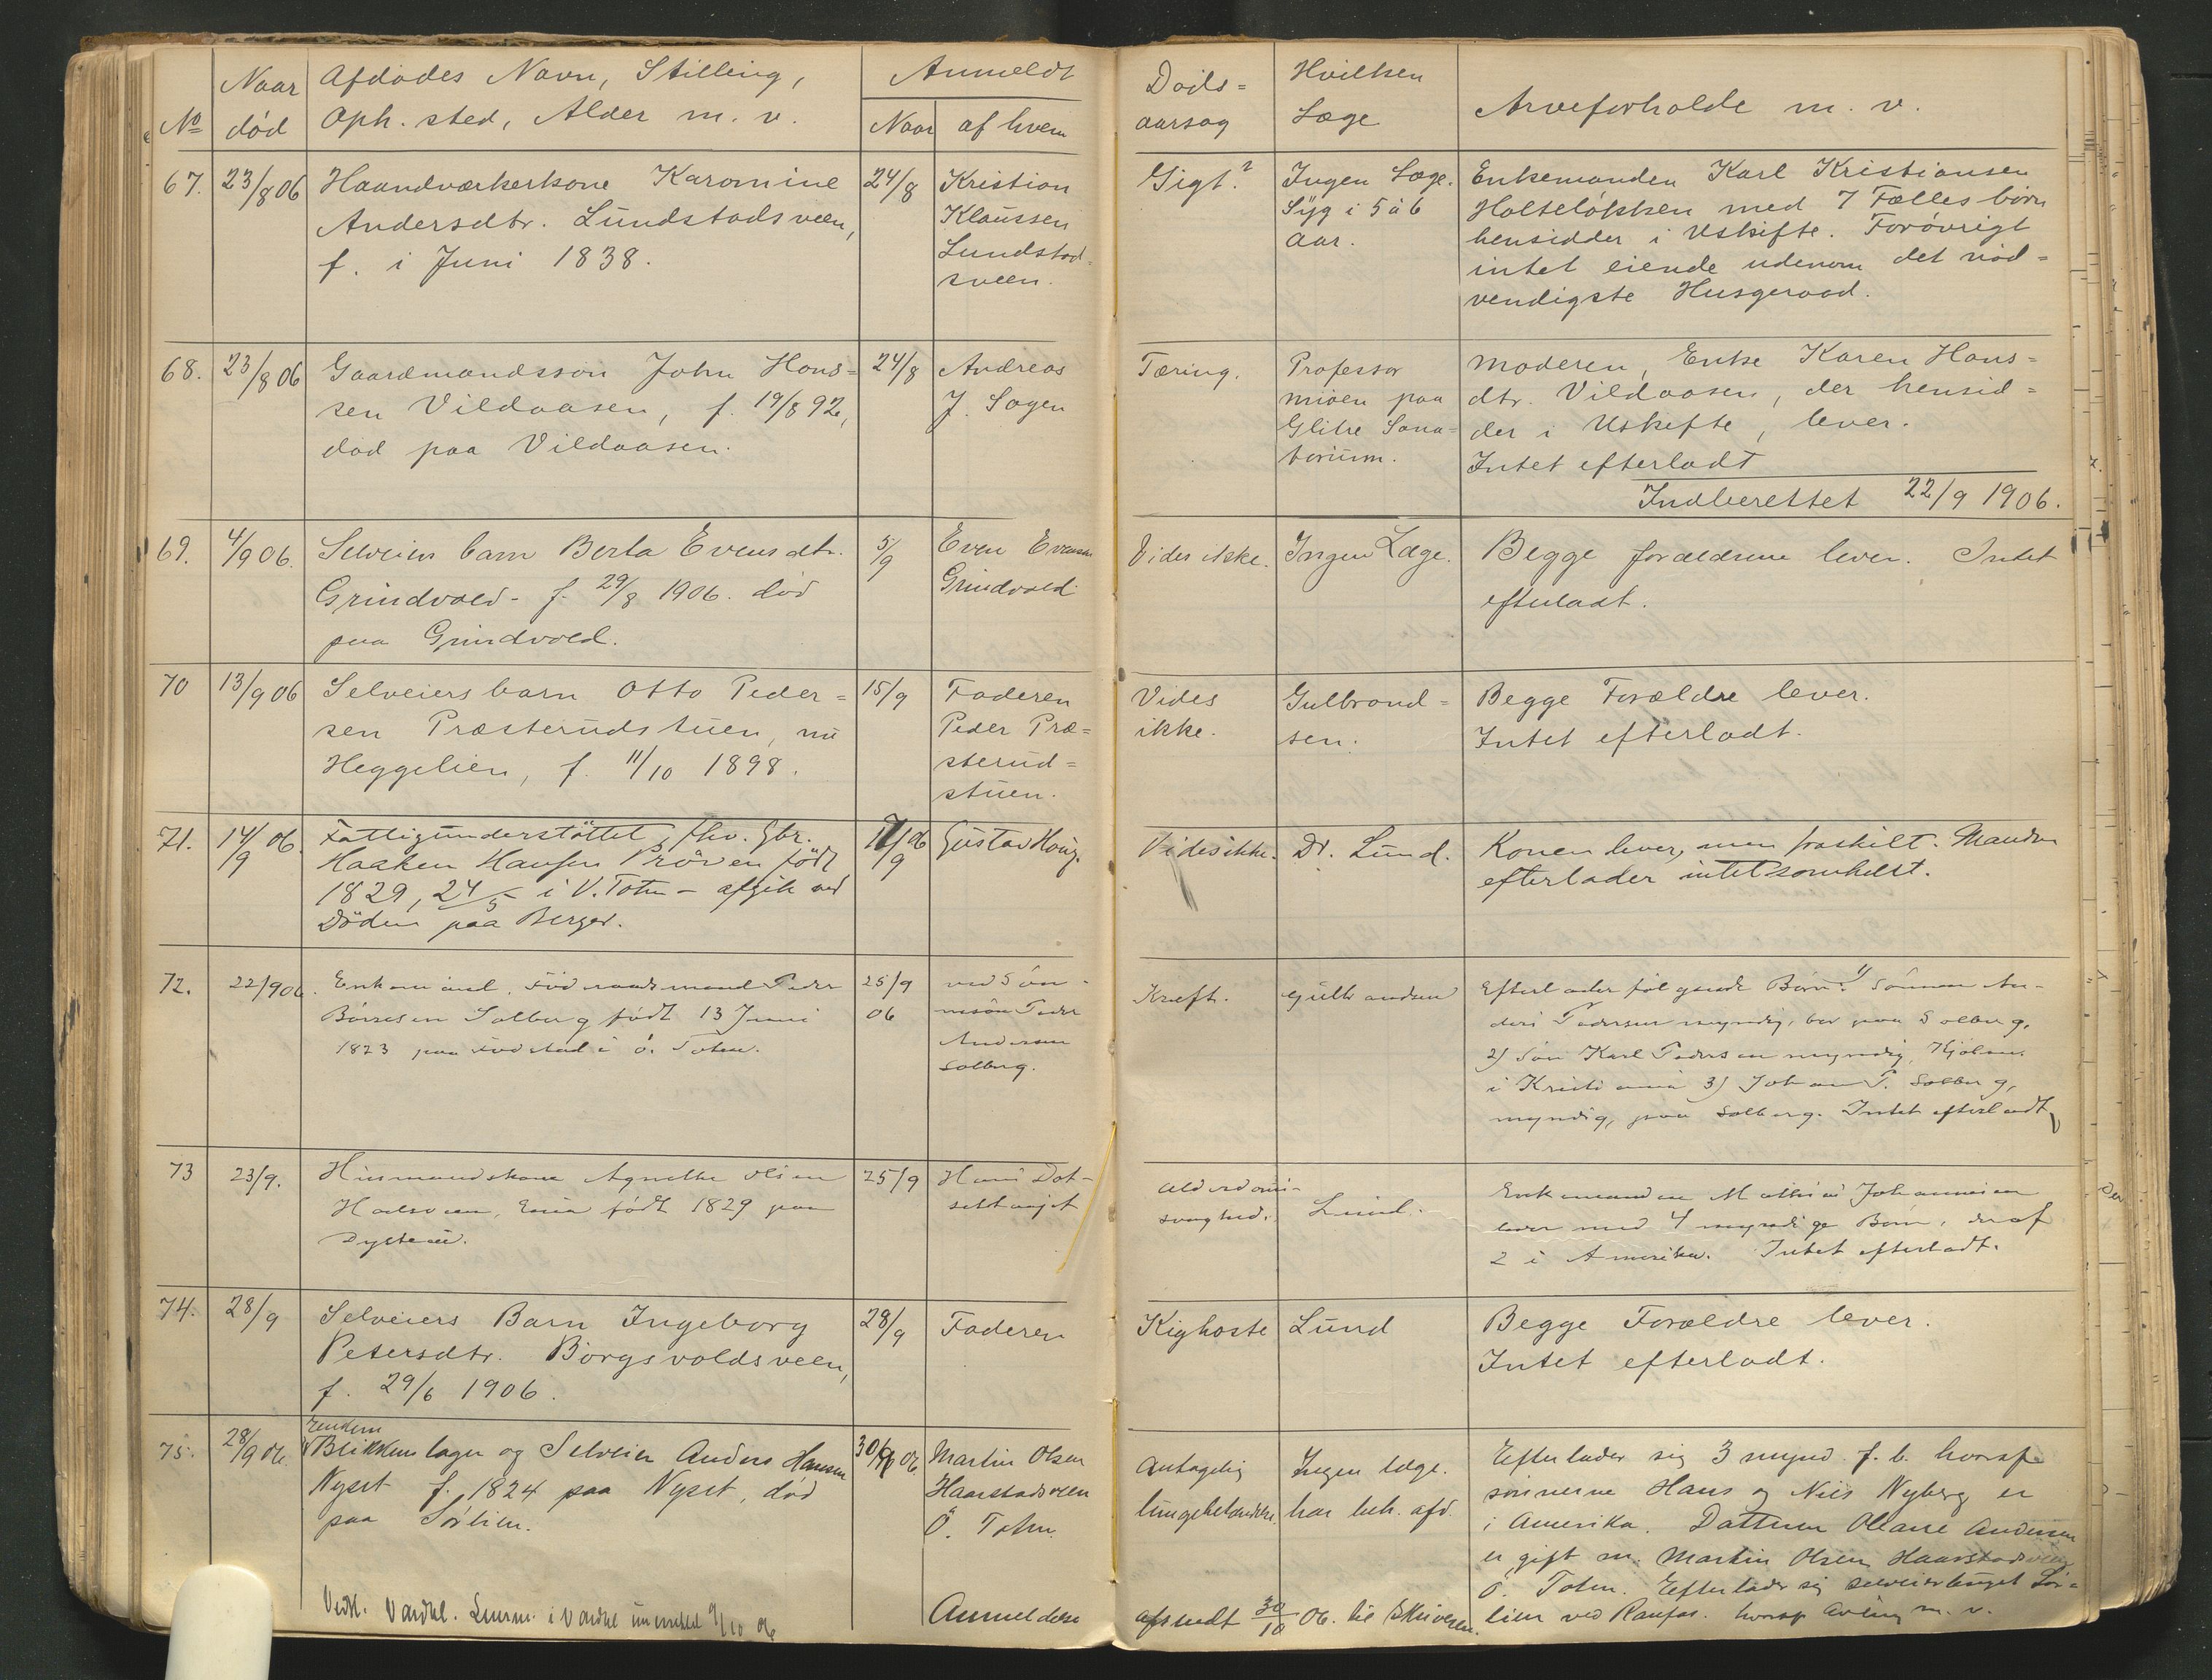 No
Naar død
Afdødes Navn, Stilling,
Oph. sted, Alder m. v.
Anmeldt
Naar
af hvem
Døds=
aarsag
Hvilken
Læge
Arveforholde m. v.
67.
23/8 06
Haandværkerkone Karomine
Andersdtr. Lundstadsveen,
f. i Juni 1838.
24/8
Kristian
Klaussen
Lundstad=
sveen.
Gigt?
Ingen Læge.
Syg i 5 à 6
Aar.
Enkemanden Karl Kristiansen
Holteløkken med 7 Fælles børn
hensidder i Uskifte. Forøvrigt
intet eiende udenom det nød=
vendigste Husgeraad.
68.
23/8 06
Gaardmandssøn John Hans=
sen Vildaasen, f. 19/8 92,
død paa Vildaasen.
24/8
Andreas
J. Sogen
Tæring.
Professor
Mioen paa
Glitre Sana=
torium.
Moderen, Enke Karen Hans=
dtr. Vildaasen, der hensid=
der i Uskifte, lever.
Intet efterladt
Indberettet 22/9 1906.
69.
4/9 06.
Selveiers barn Berta Evensdtr.
Grindvold - f. 29/8 1906. død
paa Grindvold.
5/9
Even Evensen
Grindvold
Vides ikke.
Ingen Læge.
Begge forældrene lever. Intet
efterladt.
70
13/9 06
Selveiersbarn Otto Peder=
sen Præsterudstuen, nu
Heggelien, f. 11/10 1898.
15/9
Faderen
Peder Præ=
sterud=
stuen.
Vides
ikke.
Gulbrand=
sen.
Begge Forældre lever.
Intet efterladt.
71.
14/9 06.
Fattigunderstøttet, fhv. Gbr.
Haaken Hansen Prøven født
1829, 24/5 i V. Toten - afgik ved
Døden paa Berger.
17/9 06
Gustav Honig.
Vides ikke.
Dr. Lund.
Konen lever, men fraskilt. Manden
efterlader intetsomhelst.
72.
22/9 06.
Enkemand, Føderaadsmand Peder
Børresen Solberg født 13 Juni
1823 paa Fodstad i Ö. Toten.
25/9
06
ved Søn-
nesøn Peder
Andersen
Solberg.
Kræft.
Gulbrandsen
Efterlader følgende Børn: 1) Sønnen An-
ders Pedersen myndig, bor paa Solberg.
2) Søn Karl Pedersen myndig,
i Kristiania 3) Johan P. Solberg,
myndig, paa Solberg. Intet efterladt
73
23/9.
Husmandskone Agnethe Olsen
født 1829 paa
25/9
Hans Dot-
Alderdoms-
svaghed.
Lund.
Enkemanden Mathias Johannesen
lever med 4 myndige Børn, deraf
2 i Amerika. Intet efterladt.
74.
28/9
Selveiers Barn Ingeborg
Petersdtr. Borgsvoldsveen,
f. 29/6 1906.
28/9
Faderen
Kighoste
Lund
Begge Forældre lever.
Intet efterladt.
75.
28/9 06.
Enkem
Blikkenslager og Selveier Anders Hansen
Nyset f. 1824 paa Nyset, død
paa Sørlien.
30/9 06
Martin Olsen
Haarstadsveen
Ö. Toten.
Antagelig
lungebetændelse.
Ingen læge.
har beh. afd.
Efterlader sig 3 mynd. f. b. hvoraf
sønnerne Hans og Nils Nyberg er
i Amerika. Datteren Oleane Andersen
er gift m. Martin Olsen Haarstadsveen
Ö. Toten. Efterlader sig selveierbruget Sør=
lien ved Raufos. hvorpaa Avling m. v.
Vedk. Vardal. Lensm. i Vardal 9/10 06
Anmeldelse
afsendt 30/10 06. til Skriveren.